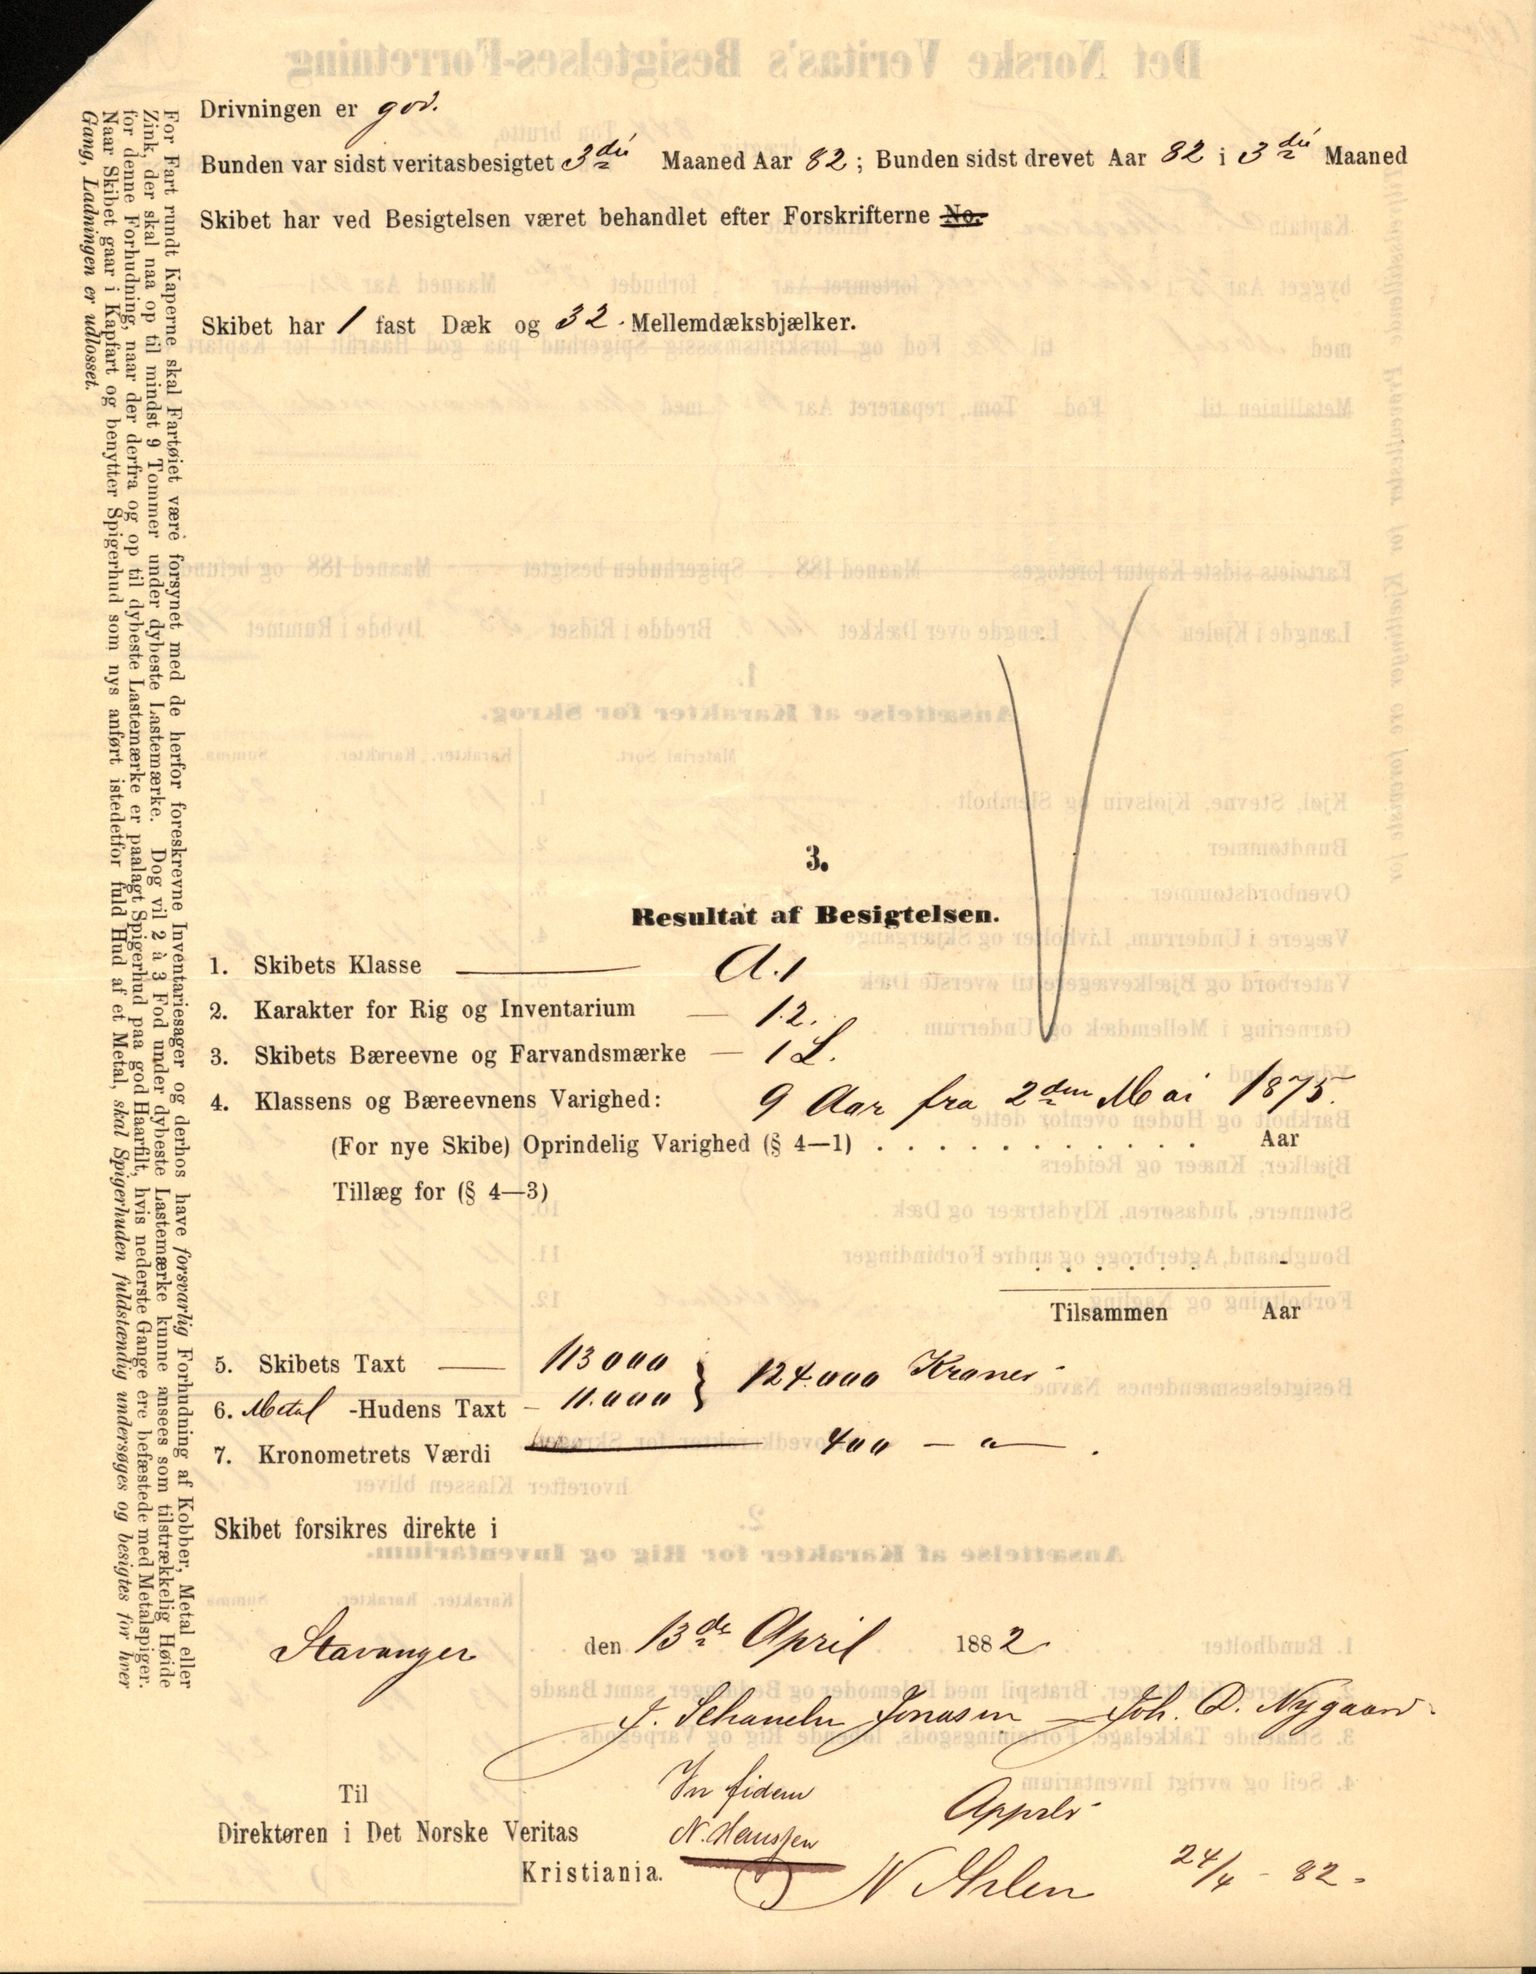 Drivningen er god.
Bunden var sidst veritasbesigtet 3die Maaned Aar 82; Bunden sidst drevet Aar 82 i 3die Maaned
Skibet har ved Besigtelsen været behandlet efter Forskrifterne No.
Skibet har 1 fast Dæk og 32 Mellemdæksbjælker.
3.
Resultat af Besigtelsen.
1. Skibets Klasse — A.1
2. Karakter for Rig og Inventarium — 12.
3. Skibets Bæreevne og Farvandsmærke — 1 L.
4. Klassens og Bæreevnens Varighed: 9 Aar fra 2den Mai 1875.
(For nye Skibe) Oprindelig Varighed (§ 4—1) . . . . . . . . . . . Aar
Tillæg for (§ 4—3)
. . . . . . -
Tilsammen Aar
5. Skibets Taxt — 113000 } 124.000 Kroner
6. Metal -Hudens Taxt - 11.000
7. Kronometrets Værdi 400 — " — .
Skibet forsikres direkte i
Stavanger den 13de April 1882.
J. Schancke Jonasen Joh. D. Nygaard.
In fidem
N. Hanssen
Til
Direktøren i Det Norske Veritas
Kristiania.
24/4 - 82.
For Fart rundt Kaperne skal Fartøiet være forsynet med de herfor foreskrevne Inventariesager og derhos have forsvarlig Forhudning af Kobber, Metal eller
Zink, der skal naa op til mindst 9 Tommer under dybeste Lastemærke. Dog vil 2 à 3 Fod under dybeste Lastemærke kunne ansees som tilstrækkelig Høide
for denne Forhudning, naar der derfra og op til dybeste Lastemærke er paalagt Spigerhud paa god Haarfilt, hvis nederste Gange ere befæstede med Metalspiger.
Naar Skibet gaar i Kapfart og benytter Spigerhud som nys anført istedetfor fuld Hud af et Metal, skal Spigerhuden fuldstændig undersøges og besigtes for hver
Gang, Ladningen er udlosset.